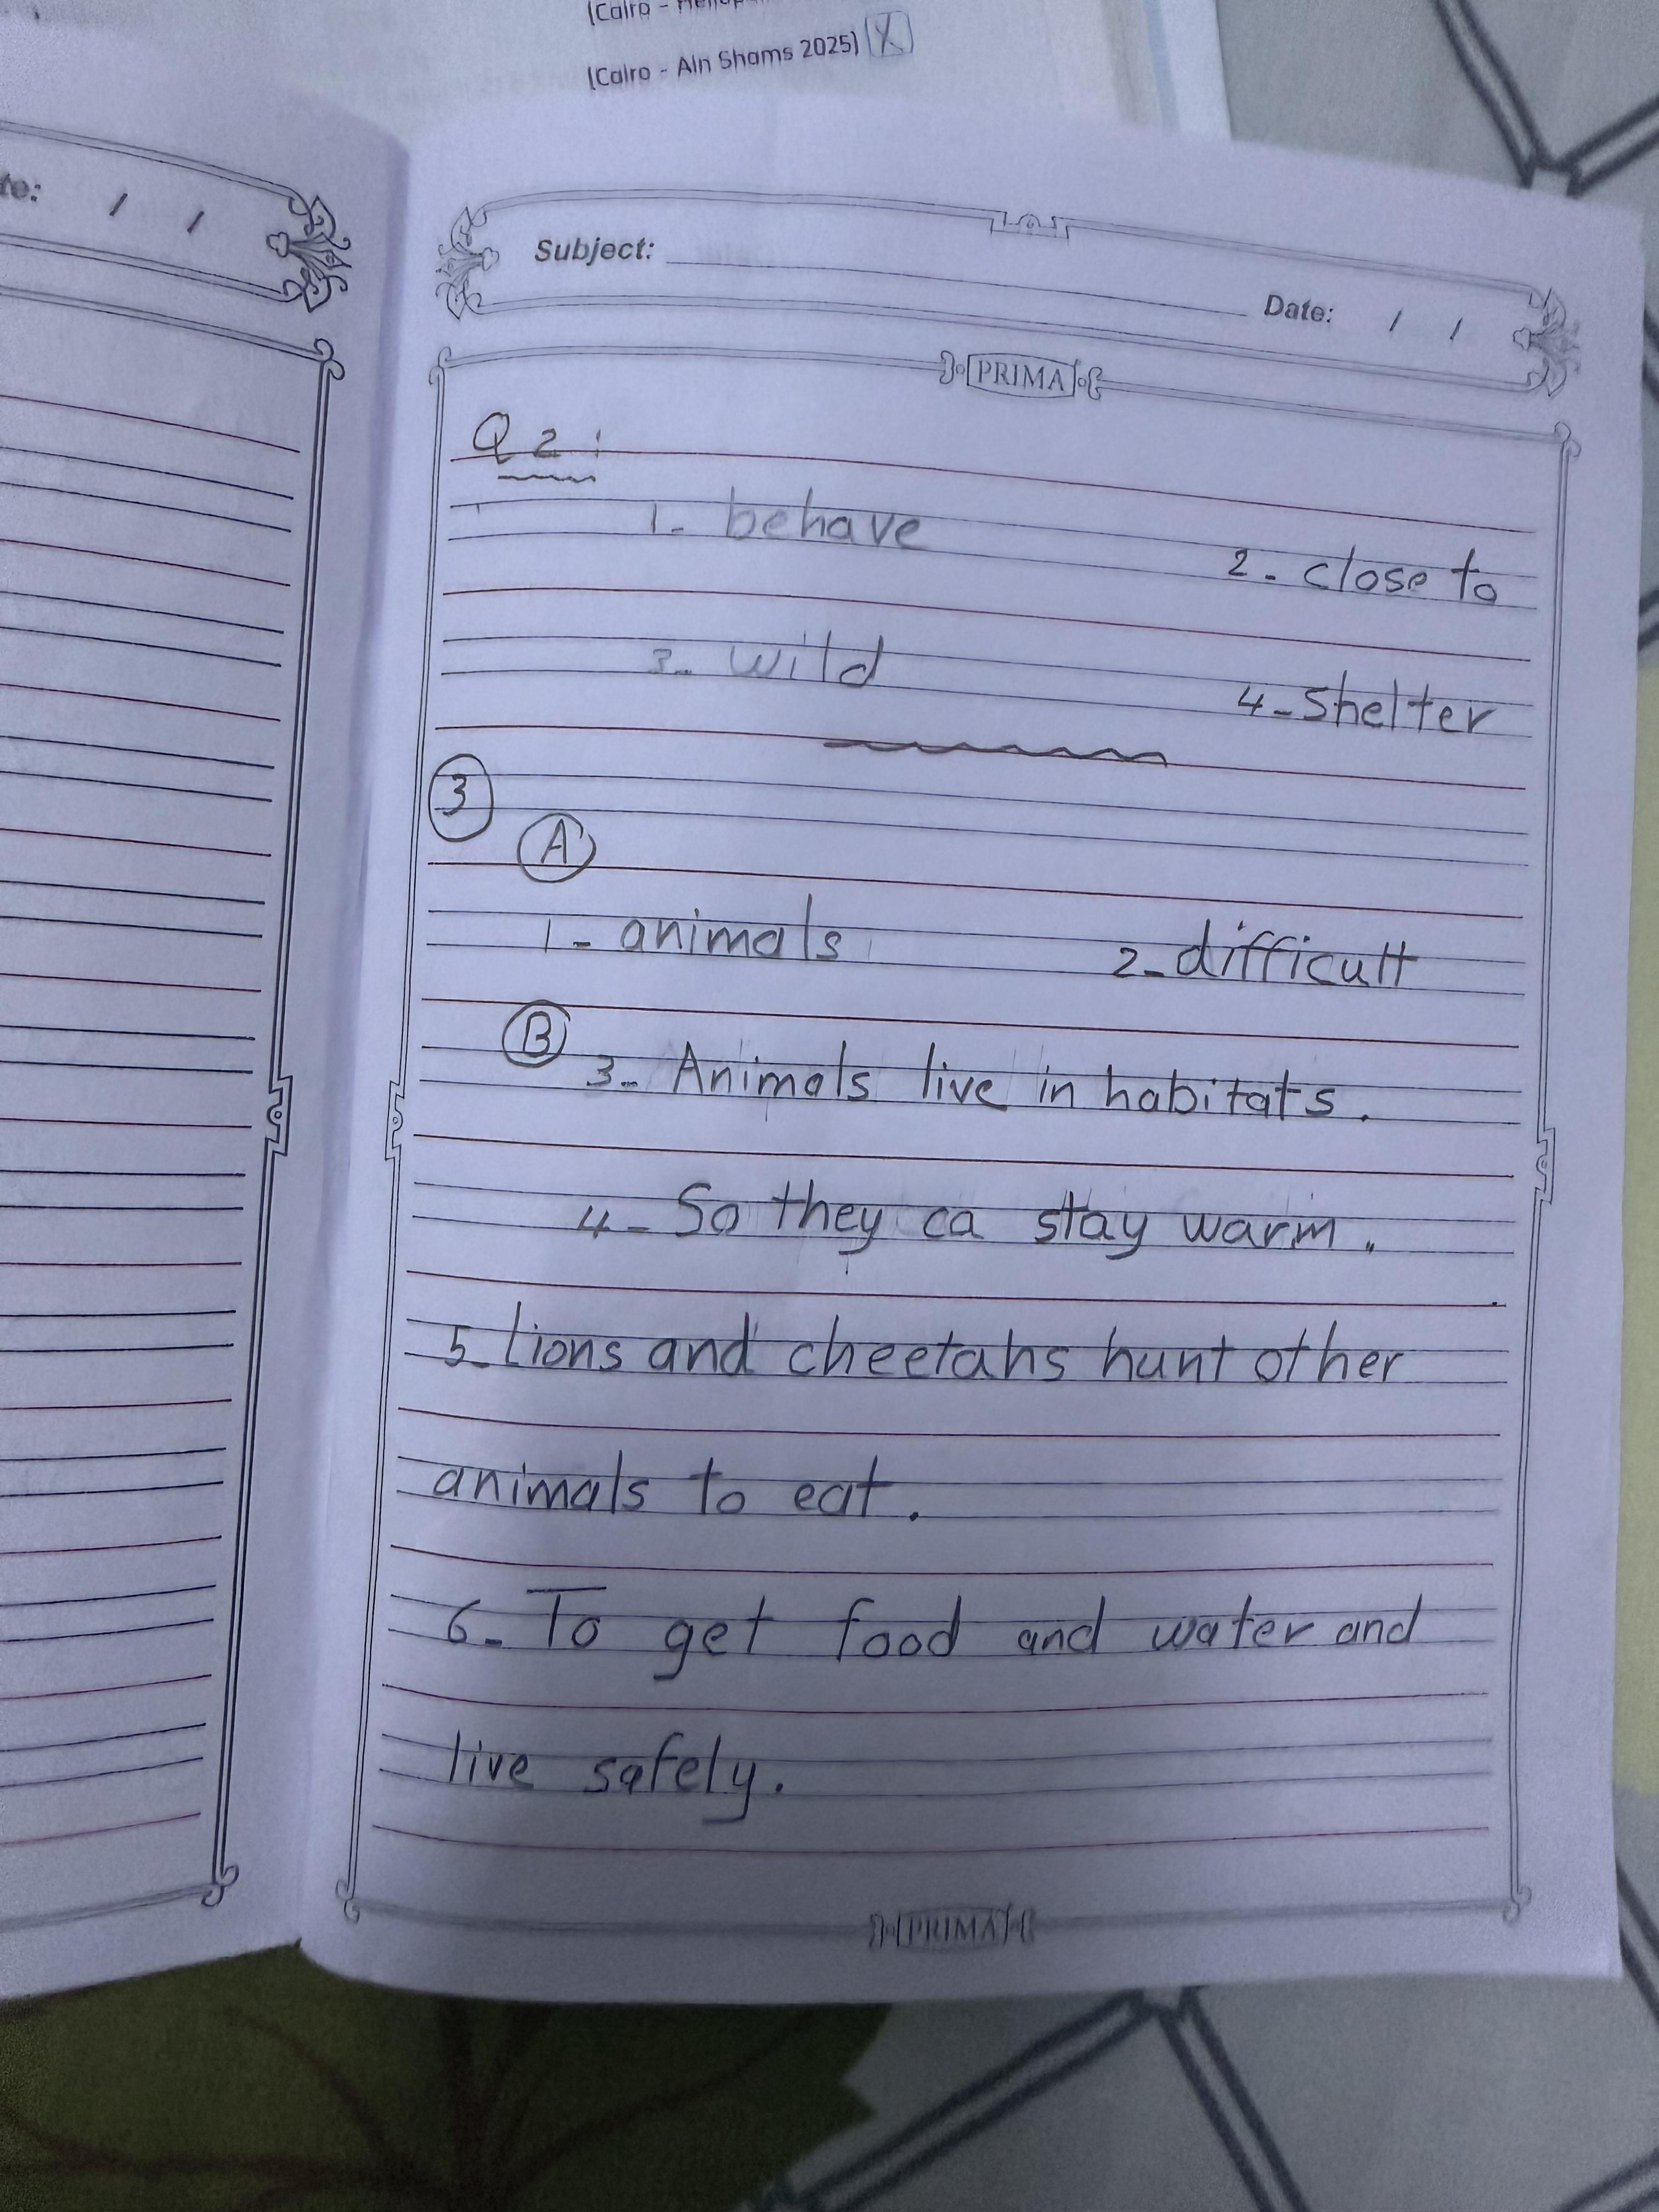 (Cairo - Ain Shams 2025) X
te: / /
Subject:
Date: / /
PRIMA
Q 2:
1- behave
2- close to
3- wild
4- shelter
3
A
1- animals
2- difficult
B
3- Animals live in habitats.
4- So they ca stay warm.
5- lions and cheetahs hunt other
animals to eat.
6- To get food and water and
live safely.
PRIMA